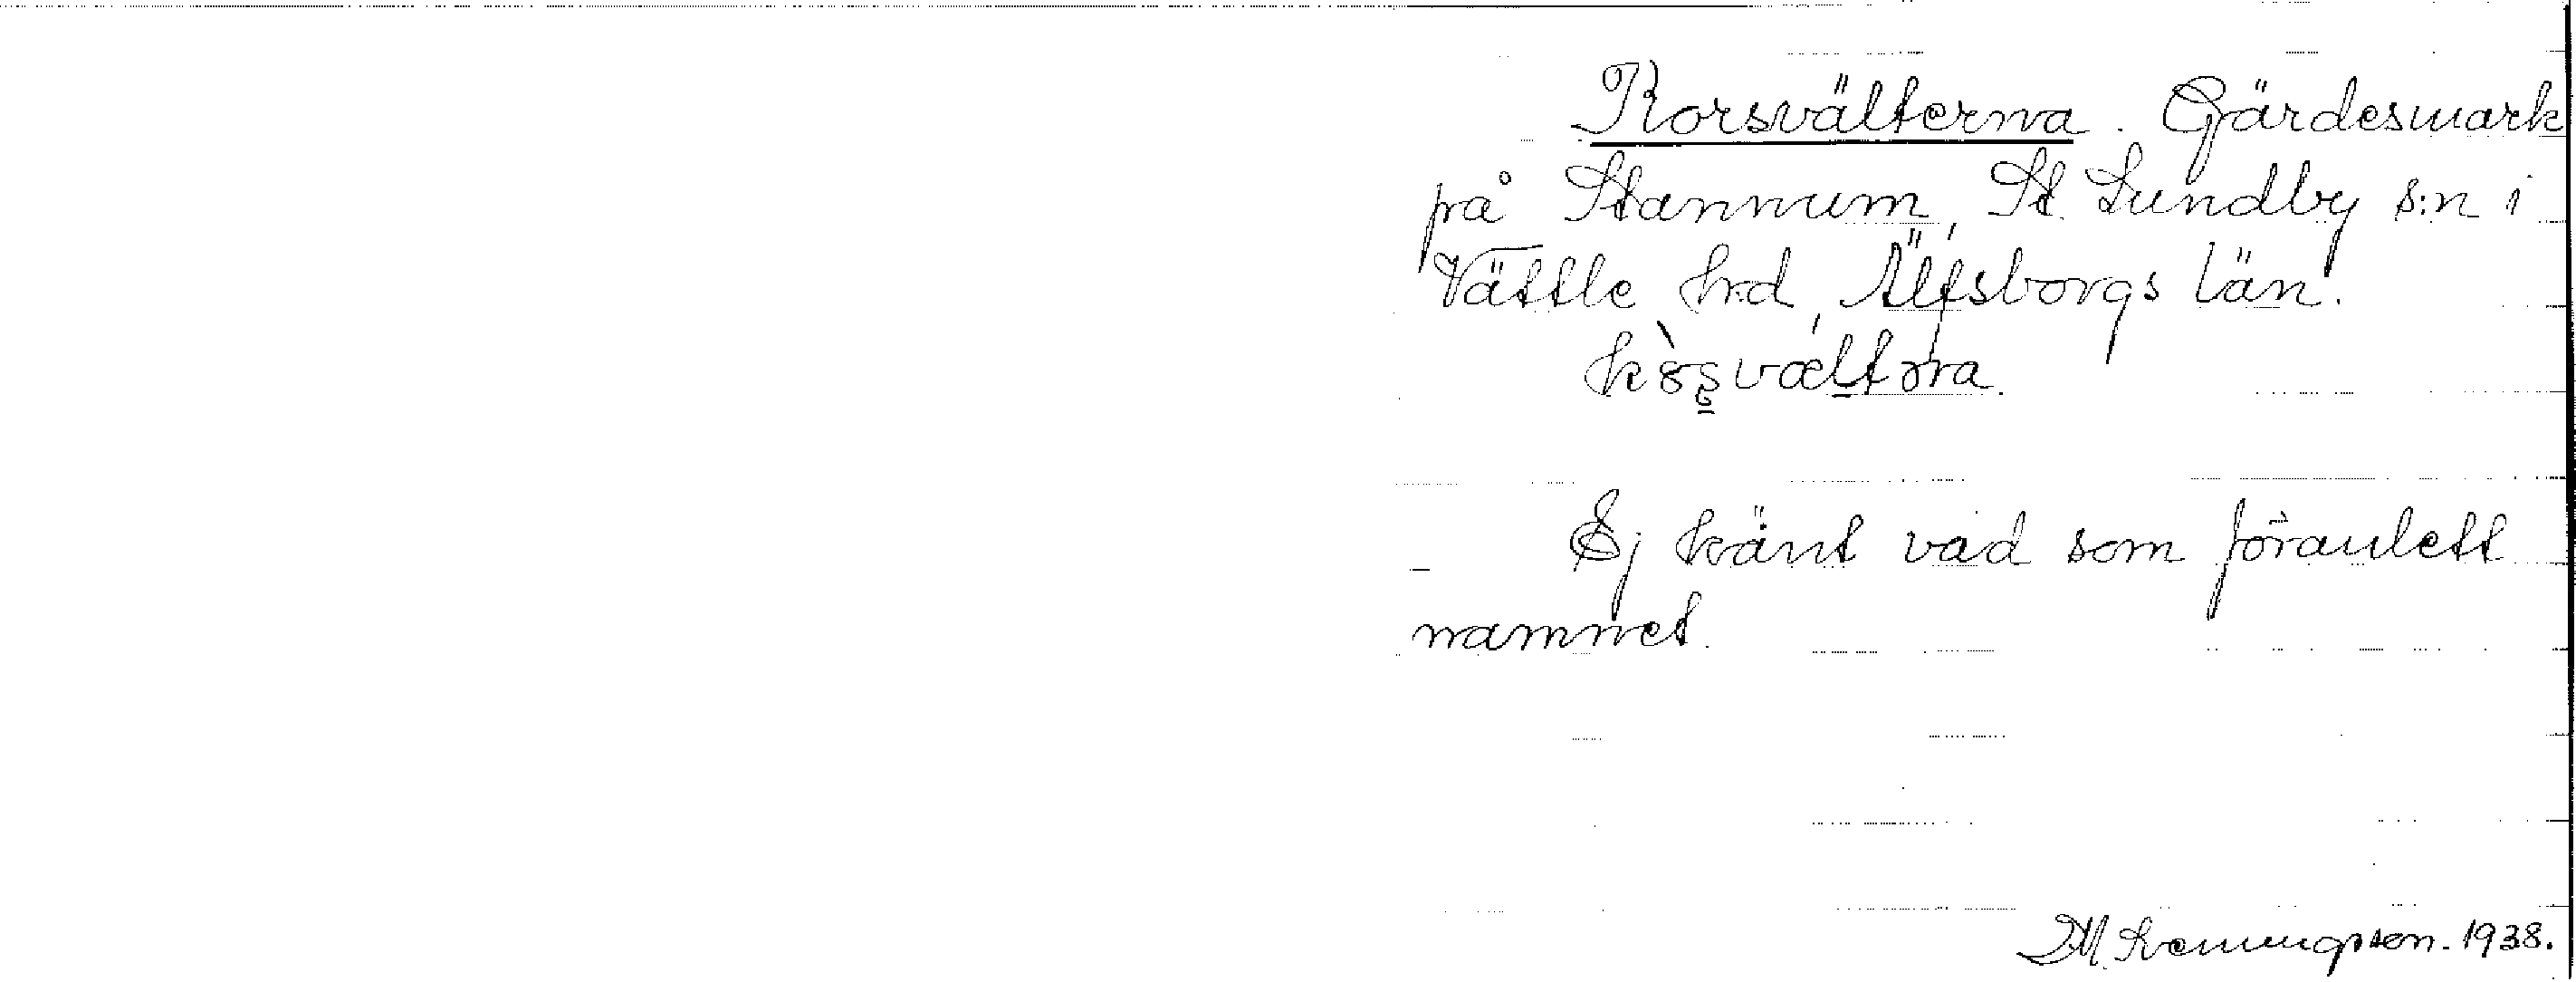 Korsvälterna. Gärdesmark
på Stannum, St. Lundby s:n i
Vättle hd, Älfsborgs län.
Ej känt vad som föranlett
namnet.
1938.